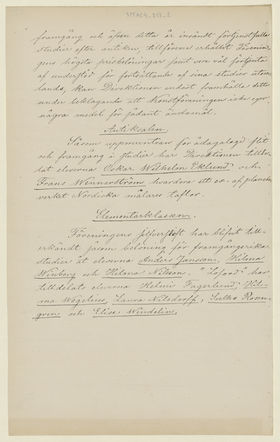 framgång och äfven detta år insändt förtjenstfulla
studier efter antiken, tillförene erhållit Förenin-
gens högsta prisbelöningar samt vore väl förtjenta
af understöd för fortsättande af sina studier utom-
lands, kan Direktionen endast framhålla detta
under beklagande att Konstföreningen icke eger
några medel för sådant ändamål.
Antiksalen.
Såsom uppmuntran för ådagalagd flit
och framgång i studier har Direktionen tillde-
lat eleverna Oskar Wilhelm Eklund och
Frans Wennerström hvardera ett ex. af planch-
verket Nordiska målares taflor.
Elementarklassen.
Föreningens silfverstift har blifvit till-
erkändt såsom belöning för framgångsrika
studier åt eleverna Anders Jansson, Helena
Winberg och Helena Nilsson. "Laford" har
tilldelats eleverna Helmi Fagerlund, Hil-
ma Wegelius, Laura Nilsdorff, Sulho Rosen-
gren och Elise Windelin.